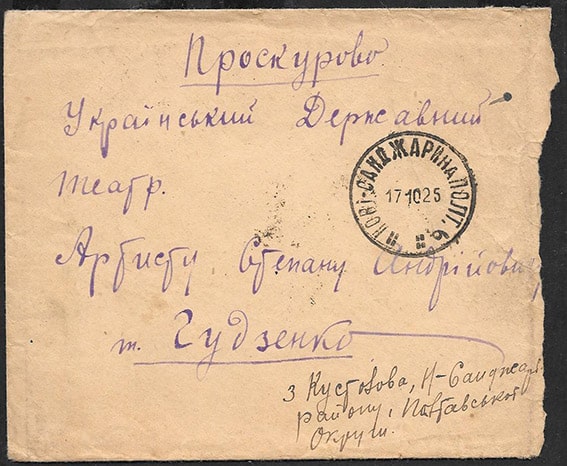 Проскурово
Український Державний
театр.
НОВІ-САНДЖАРИ НА ПОЛТ.
17 10 25
Артисту Степану Андрійовичу
т. Гудзенко
з Кустолова, Н-Санджар.
району, Полтавської
Округи.